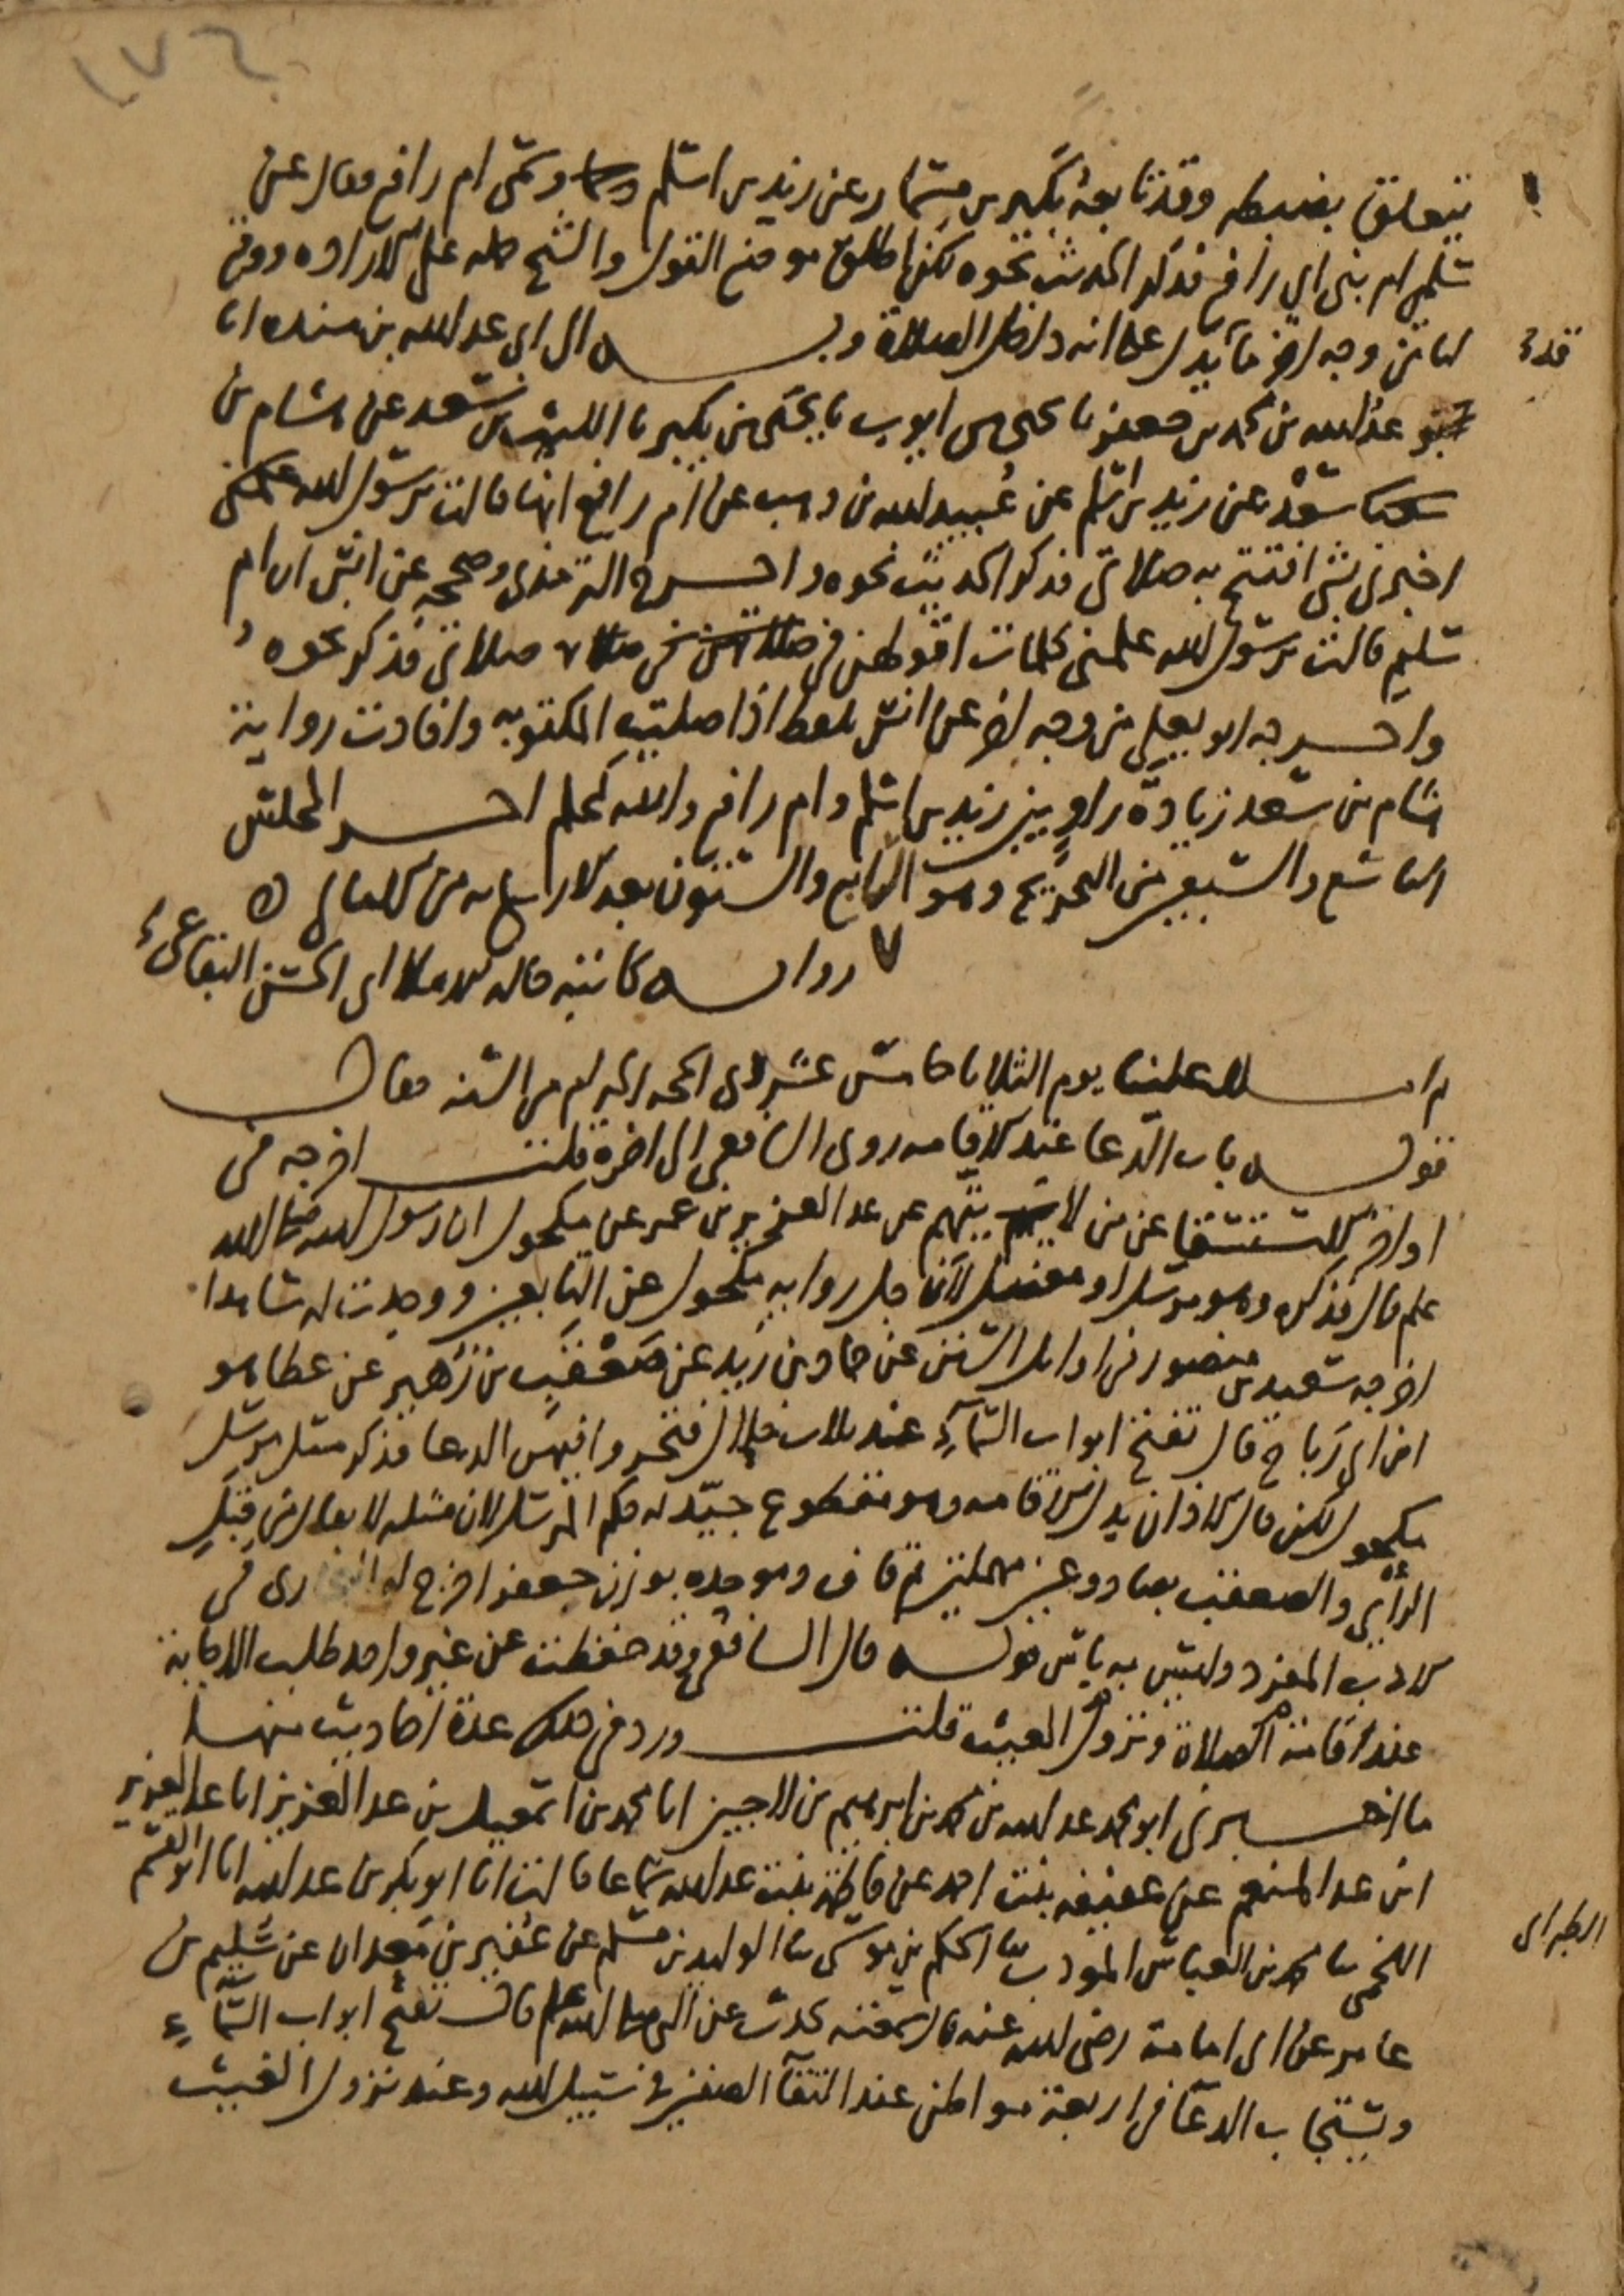 ١٧٦
يتعلق بضبطه وقد تابعه بكير بن مسمار عن زيد بن اسلم وسمى ام رافع فقال عن
سلمى ام بنى ابي رافع فذكر الحديث نحوه لكن اطلق موضع القول والشيخ حمله على الارادة ووقع
لنا من وجه اخر ما يدل على انه داخل الصلاة وبه الى ابي عبد الله بن منده انا
عبد الله بن محمد بن جعفر نا يحيى بن ايوب نا يحيى بن بكير نا الليث بن سعد عن هشام بن
سعد عن زيد بن اسلم عن عبيد الله بن وهب عن ام رافع انها قالت يرسول الله
اخبرني بشي افتتح به صلاتي فذكر الحديث نحوه واخرج الترمذي وصححه عن انس ان ام
سليم قالت يرسول الله علمني كلمات اقولهن في صلاتي فذكر نحوه
واخرجه ابو يعلى من وجه اخر عن انس بلفظ اذا صليت المكتوبة وافادت رواية
هشام بن سعد زيادة راو بين زيد بن اسلم وام رافع والله اعلم اخر المجلس
التاسع والسبعين من التخريج وهو الرابع والستون بعد الاربعمايه من الامالي
رواية كاتبه قاله املا ابي الحسن البقاعي
ثم املا علينا يوم الثلاثا خامس عشر ذي الحجة الحرام من السنه فقال
قوله باب الدعا عند الاقامه روى الشافعي الى اخره قلت اخرجه في
اواخر الاستسقا عن من لا يتهم عن عبد العزيز بن عمر عن مكحول ان رسول الله صلى الله
عليه وسلم قال فذكره وهو مرسل او معضل لان جل رواية مكحول عن التابعين ووجدت له شاهدا
اخرجه سعيد بن منصور في اوايل السنن عن حماد بن زيد عن صعقب بن زهير عن عطا هو
ابن ابي رباح قال تفتح ابواب السماء عند ثلاث خلال فتحروا فيهن الدعا فذكر مثل مرسل
مكحول لكن قال الاذان بدل الاقامه وهو مقطوع جيد له حكم المرسل لان مثله لا يقال من قبل
الرأي والصعقب بصاد وعين مهملتين ثم قاف وموحدة بوزن جعفر اخرج له البخاري في
الادب المفرد وليس به باس قوله قال الشافعي وقد حفظت عن غير واحد طلب الاجابة
عند اقامة الصلاة ونزول الغيث قلت ورد في ذلك عدة احاديث منها
ما اخبرني ابو محمد عبد الله بن محمد بن ابرهيم بن لاجين انا محمد بن اسمعيل بن عبد العزيز انا عبد العزيز
ابن عبد المنعم عن عفيفه بنت احمد عن فاطمة بنت عبد الله سماعا قالت انا ابو بكر بن عبد الله انا ابو القسم
اللخمي نا محمد بن العباس المودب نا الحكم بن موسى نا الوليد بن مسلم عن عفير بن معدان عن سليم بن
عامر عن ابي امامة رضي الله عنه قال سمعته يحدث عن النبي صلى الله عليه وسلم قال تفتح ابواب السماء
ويستجاب الدعا في اربعة مواطن عند التقآ الصفين في سبيل الله وعند نزول الغيث
الطبراني